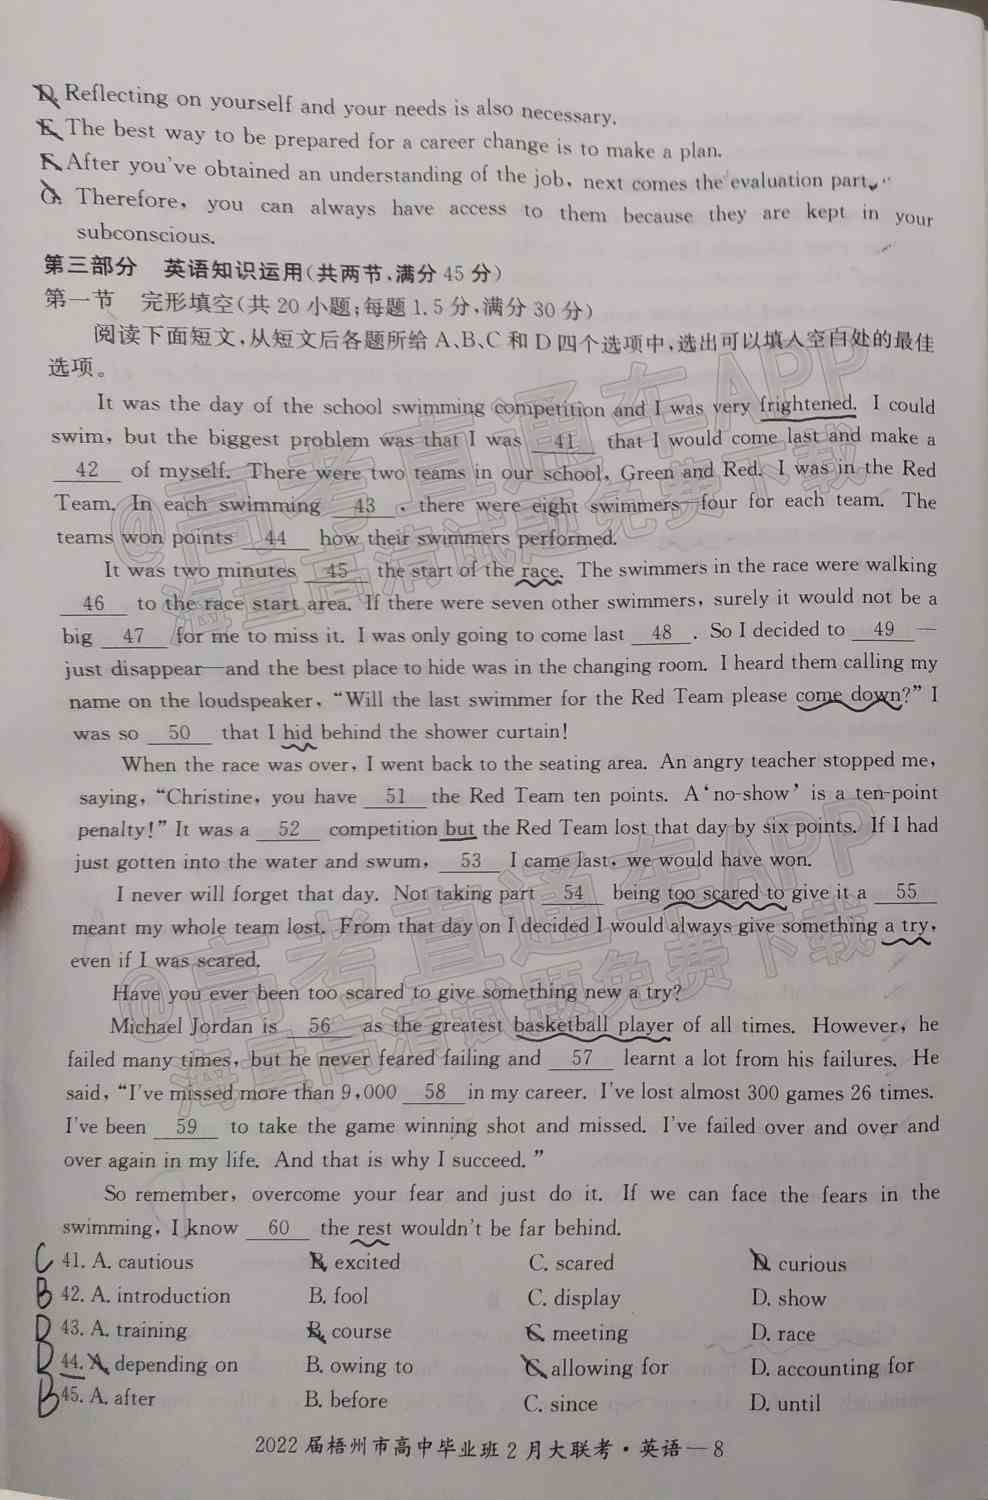 D. Reflecting on yourself and your needs is also necessary.
E. The best way to be prepared for a career change is to make a plan.
F. After you've obtained an understanding of the job, next comes the evaluation part.
G. Therefore, you can always have access to them because they are kept in your
subconscious.
第三部分 英语知识运用(共两节,满分 45 分)
第一节 完形填空(共 20 小题;每题 1.5 分,满分 30 分)
阅读下面短文,从短文后各题所给 A、B、C 和 D 四个选项中,选出可以填入空白处的最佳
选项。
It was the day of the school swimming competition and I was very frightened. I could
swim, but the biggest problem was that I was 41 that I would come last and make a
42 of myself. There were two teams in our school, Green and Red. I was in the Red
Team. In each swimming 43, there were eight swimmers—four for each team. The
teams won points 44 how their swimmers performed.
It was two minutes 45 the start of the race. The swimmers in the race were walking
46 to the race start area. If there were seven other swimmers, surely it would not be a
big 47 for me to miss it. I was only going to come last 48. So I decided to 49—
just disappear—and the best place to hide was in the changing room. I heard them calling my
name on the loudspeaker, “Will the last swimmer for the Red Team please come down?” I
was so 50 that I hid behind the shower curtain!
When the race was over, I went back to the seating area. An angry teacher stopped me,
saying, “Christine, you have 51 the Red Team ten points. A‘no-show’ is a ten-point
penalty!” It was a 52 competition but the Red Team lost that day by six points. If I had
just gotten into the water and swum, 53 I came last, we would have won.
I never will forget that day. Not taking part 54 being too scared to give it a 55
meant my whole team lost. From that day on I decided I would always give something a try,
even if I was scared.
Have you ever been too scared to give something new a try?
Michael Jordan is 56 as the greatest basketball player of all times. However, he
failed many times, but he never feared failing and 57 learnt a lot from his failures. He
said, “I've missed more than 9,000 58 in my career. I've lost almost 300 games 26 times.
I've been 59 to take the game winning shot and missed. I've failed over and over and
over again in my life. And that is why I succeed.”
So remember, overcome your fear and just do it. If we can face the fears in the
swimming, I know 60 the rest wouldn't be far behind.
C 41. A. cautious B. excited C. scared D. curious
B 42. A. introduction B. fool C. display D. show
D 43. A. training B. course C. meeting D. race
D 44. A. depending on B. owing to C. allowing for D. accounting for
B 45. A. after B. before C. since D. until
2022 届梧州市高中毕业班 2 月大联考·英语—8
@高考直通车APP
海量高清试题免费下载
@高考直通车APP
海量高清试题免费下载